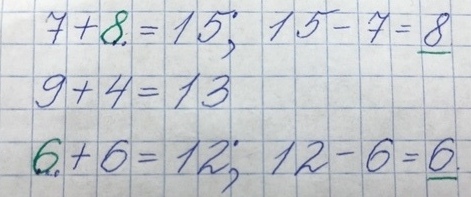 7+8=15; 15-7=8
9+4=13
6+6=12; 12-6=6